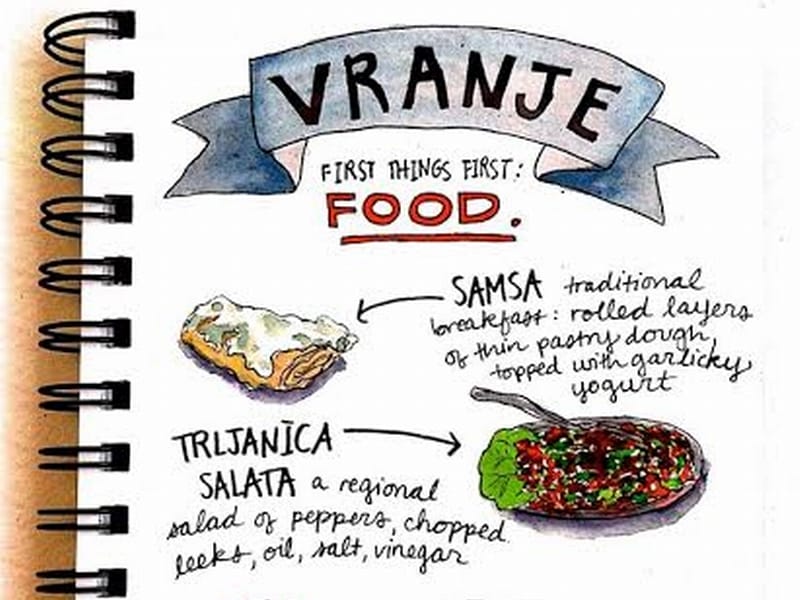 VRANJE
FIRST THINGS FIRST:
FOOD.
SAMSA traditional
breakfast: rolled layers
of thin pastry dough,
topped with garlicky
yogurt
TRLJANĪCA
SALATA a regional
salad of peppers, chopped
leeks, oil, salt, vinegar